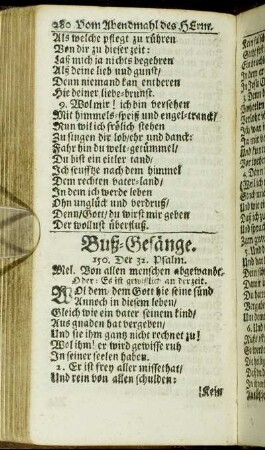 280 Vom Abendmahl des HErrn.
Als welche pflegt zu rühren
Von dir zu dieser zeit:
Laß mich ja nichts begehren
Als deine lieb und gunst/
Denn niemand kan entberen
Hie deiner liebe-brunst.
9. Wol mir! ich bin versehen
Mit himmels-speiß und engel-tranck/
Nun wil ich frölich stehen
Zu singen dir lob/ehr und danck:
Fahr hin du welt-getümmel/
Du bist ein eitler tand/
Ich seuffze nach dem himmel
Dem rechten vater-land/
In dem ich werde leben
Ohn unglück und verdruß/
Denn/Gott/du wirst mir geben
Der wollust überfluß.
Buß-Gesänge.
150. Der 32. Psalm.
Mel. Von allen menschen abgewandt.
Oder: Es ist gewißlich an der zeit.
WOl dem/dem Gott die seine sünd
Annoch in diesem leben/
Gleich wie ein vater seinem kind/
Aus gnaden hat vergeben/
Und sie ihm gantz nicht rechnet zu!
Wol ihm! er wird gewisse ruh
In seiner seelen haben.
2. Er ist frey aller missethat/
Und rein von allen schulden:
Kein